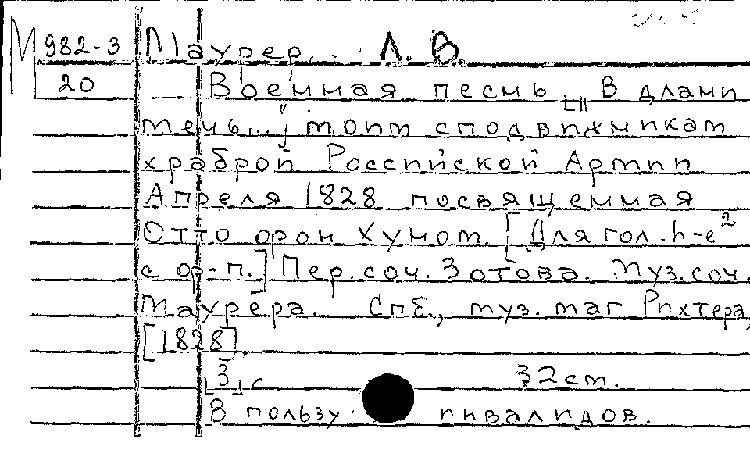 М 982-3 Маурер. Л. В.
20 Военная песнь [„В длани
мечь..."] томи сподвижникам
храброй Российской Армии
Апреля 1828 посвященная
Отто фон Хуном. [Для гол. h-e²
с ф-п.] Пер. соч. Зотова. Муз. соч.
Маурера. Спб., муз. маг Рихтера,
[1828].
[3] с 32 см.
В пользу инвалидов.